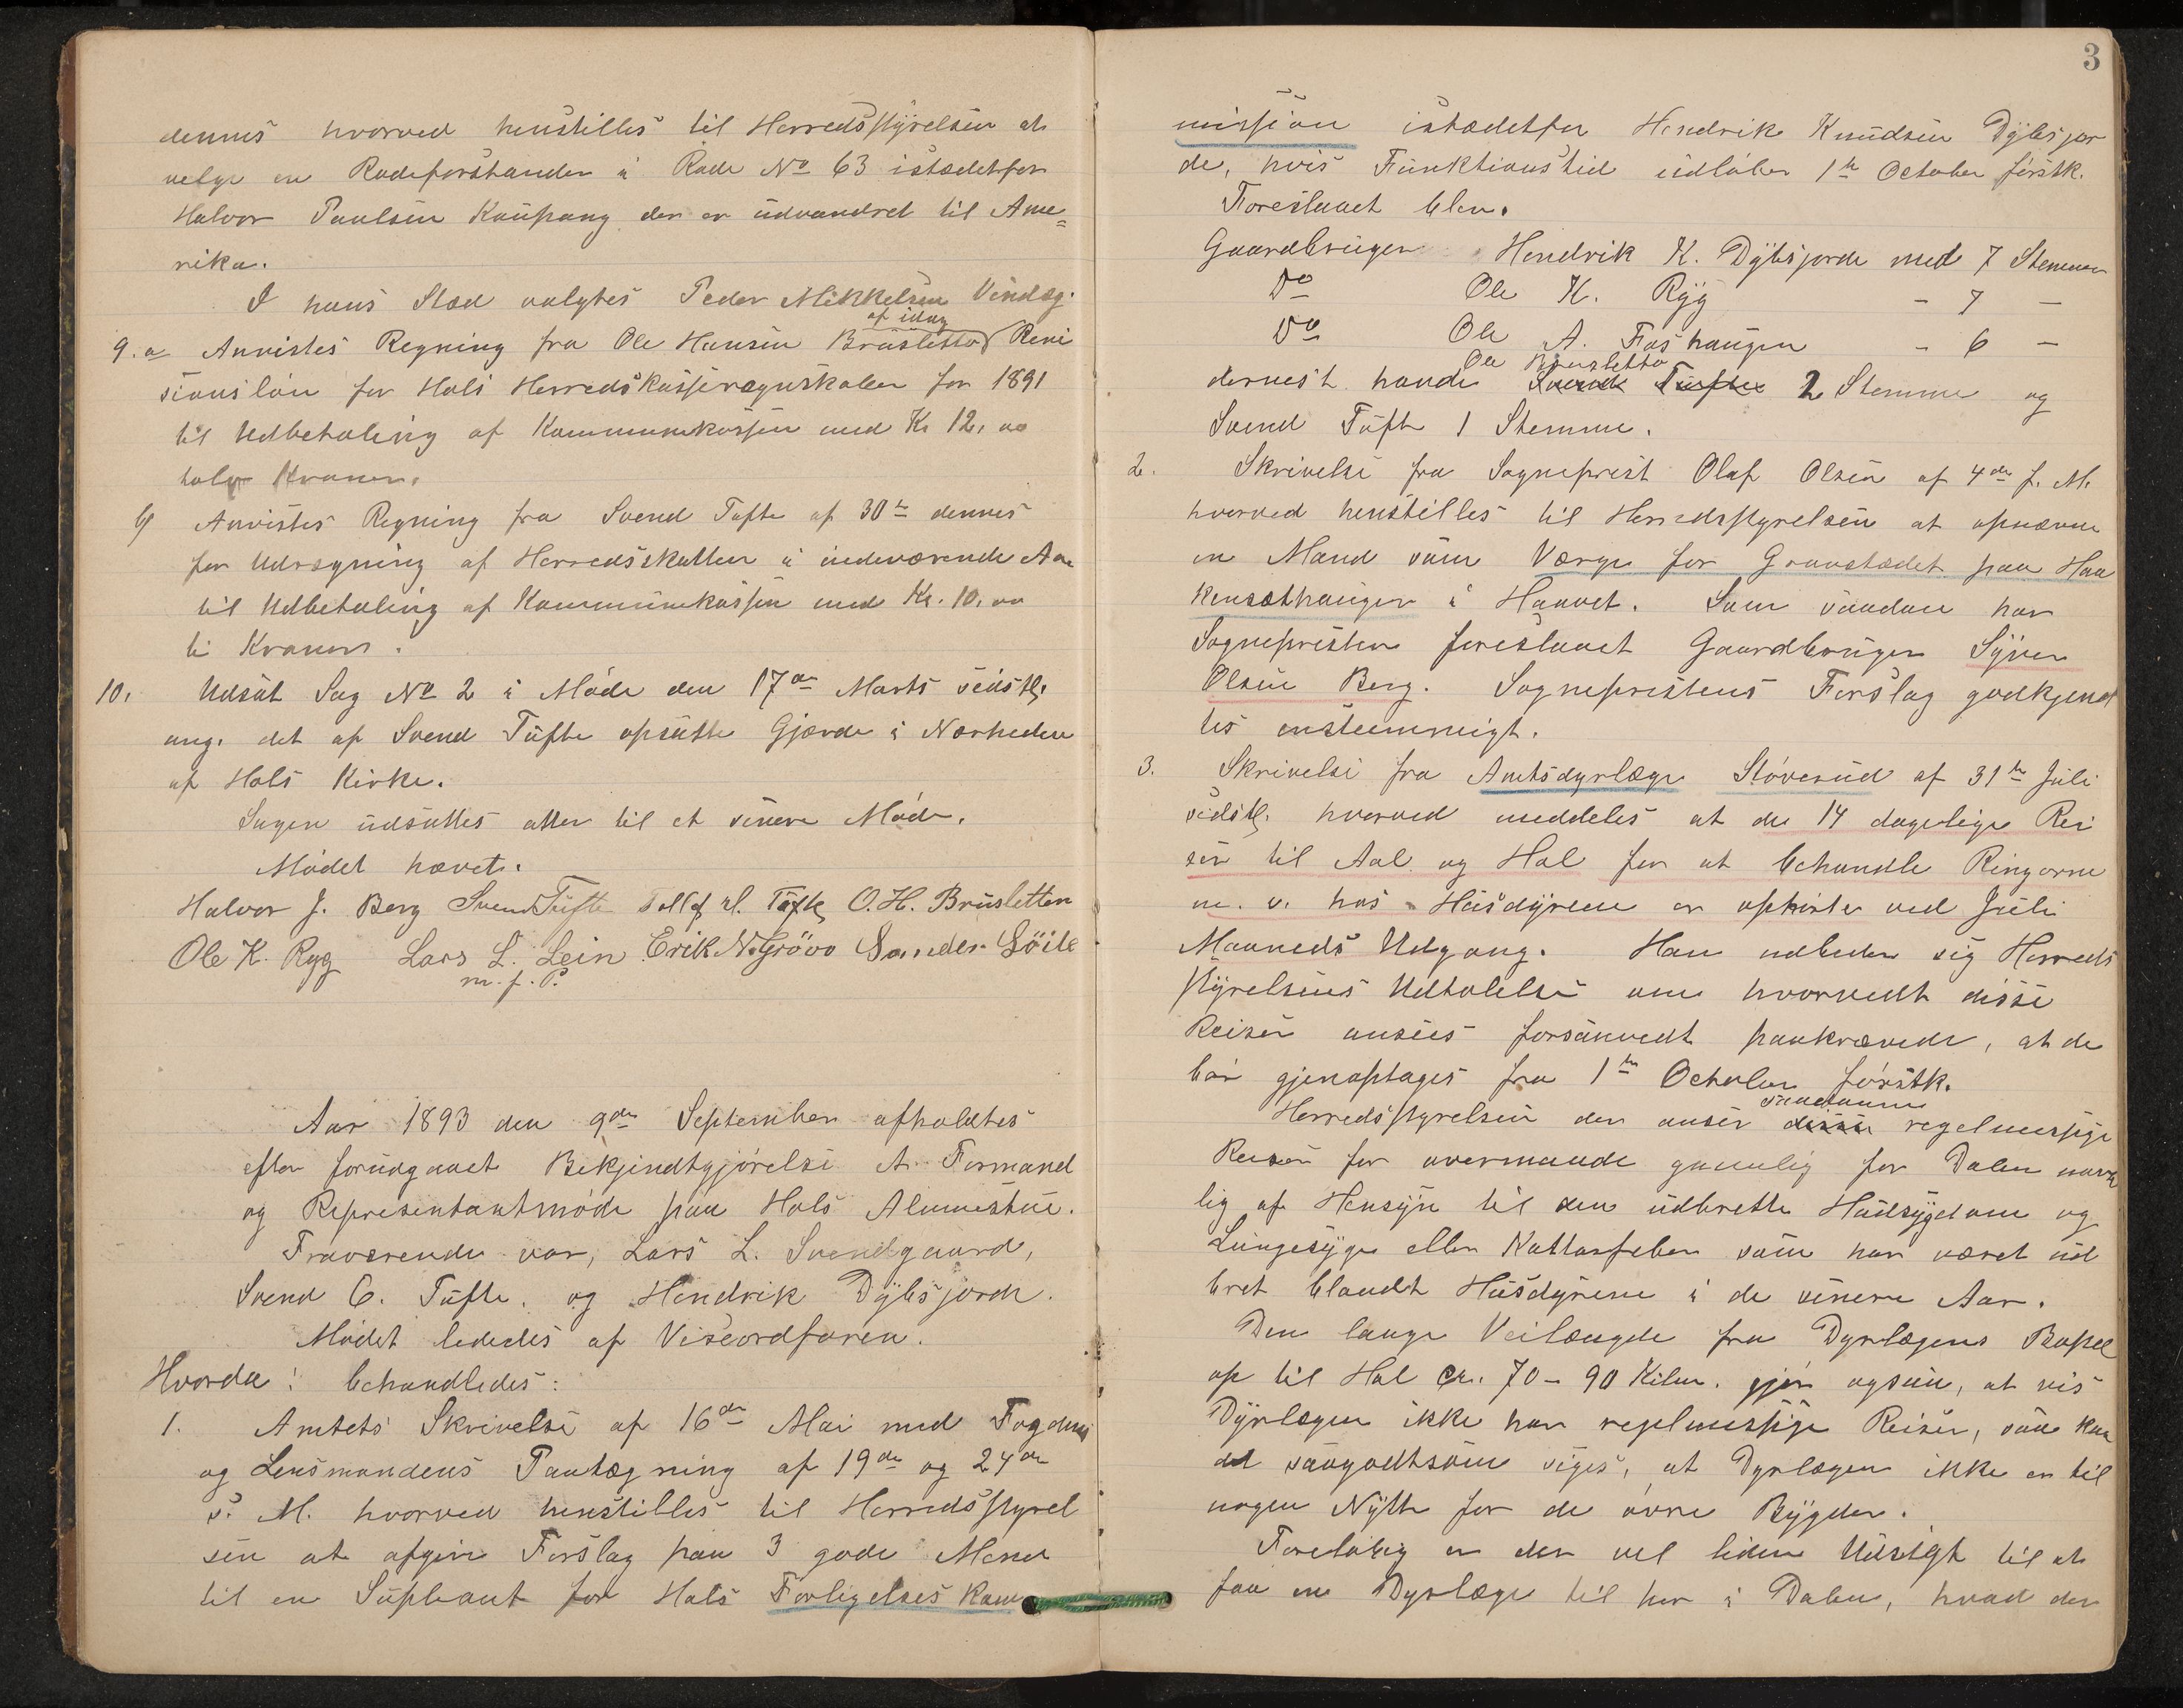 dennes hvorved henstilles til Herredsstyrelsen at
velge en Rodeforstander i Rode No 63 istædetfor
Halvor Paulsen Kaupang der er udvandret til Ame=
rika.
I hans Sted valgtes Peder Mikkelsen Vindeg.
af idag
9.a Anvistes Regning fra Ole Hansen Brusletto Revi
sionsløn for Hols Herredskasseregnskaber for 1891
til Udbetaling af Kommunekassen med Kr 12,00
tolv Kroner.
b/ Anvistes Regning fra Svend Tufte af 30te dennes
for Udregning af Herredsskatten i indeværende Aar
til Udbetaling af Kommunekassen med Kr. 10,00
ti Kroner.
10. Udsat Sag No 2 i Møde den 17de Marts sidstl.
ang. det af Svend Tufte opsatte Gjærde i Nærheden
af Hols Kirke.
Sagen udsattes atter til et senere Møde.
Mødet hævet.
Halvor J. Berg Svend Tufte Tollef H. Tufte O.H. Brusletten
Ole K. Ryg Lars L. Lein Erik N. Grövo Sander Göile
m. f. P.
Aar 1893 den 9de September afholdtes
efter forudgaaet Bekjendtgjørelse et Formand
og Representantmøde paa Hols Almuestue.
Fraværende var, Lars L. Svendgaard,
Svend C. Tufte. og Hendrik Dybsjorde.
Mødet lededes af Viseordføren.
Hvorda: behandledes:
1. Amtets Skrivelse af 16de Mai med Fogdens
og Lensmandens Paategning af 19de og 24de
s. M. hvorved henstilles til Herredsstyrel
sen at afgive Forslag paa 3 gode Mænd
til en Supleant for Hols Forligelses Kom
3
mission istædetfor Hendrik Knudsen Dybsjor
de, hvis Funktionstid udløber 1te October førstk.
Foreslaaet blev.
Gaardbruger Hendrik K. Dybsjorde med 7 Stemmer
Do Ole K. Ryg - 7 -
Do Ole A. Foshaugen - 6 -
Ole Brusletto
dernest havde Svend Tufte 2 Stemme og
Svend Tufte 1 Stemme.
2. Skrivelse fra Sogneprest Olaf Olsen af 4de f. M.
hvorved henstilles til Herredsstyrelsen at opnævne
en Mand som Værge for Gravstædet paa Haa
kensæthaugen i Hovet. Som saadan har
Sognepresten foreslaaet Gaardbruger Syver
Olsen Berg. Sogneprestens Forslag godkjend
tes enstemmigt.
3. Skrivelse fra Amtsdyrlæge Støverud af 31te Juli
sidstl. hvorved meddeles at de 14 dagelige Rei
ser til Aal og Hol for at behandle Ringorm
m. v. hos Husdyrene er ophørte ved Juli
Maaneds Udgang. Han udbeder sig Herreds
styrelsens Udtalelse om hvorvidt disse
Reiser ansees forsaavidt paakrævede, at de
bør gjenoptages fra 1te October førstk.
saadanne
Herredsstyrelsen der anser disse regelmessige
Reiser for overmaade gavnlig for Dalen navn
lig af Hensyn til den udbrette Hudsygdom og
Lungesyge eller Kattarfeber som har været ud
bret blandt Husdyrene i de senere Aar.
Den lange Veilængde fra Dyrlægens Bopæl
op til Hol Ca. 70 - 90 Kilm. gjør ogsaa, at vis
Dyrlægen ikke har regelmessige Reiser, saa kan
det saagodtsom siges, at Dyrlægen ikke er til
nogen Nytte for de øvre Bygder.
Foreløbig er der vel liden Udsigt til at
faa en Dyrlæge til her i Dalen, hvad der